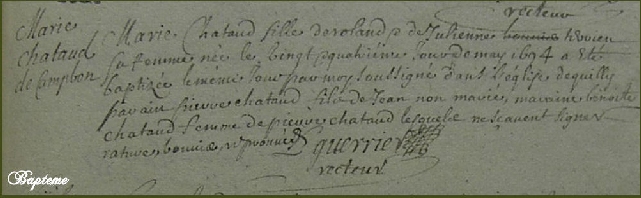 recteur
Marie
chataud
de Campbon
Marie Chataud fille de roland & de Julienne bouvie trovien
sa femme née le vingt quatrième Jour de may 1694 a Eté
baptizée le même Jour par moy soussigné dans l'église de quilly
parain pierre chataud fils de Jean non marié, maraine benoite
chataud femme de pierre chataud lesquels ne sçavent signer
rature bouvie reprouvée
guerrier
recteur
Bapteme